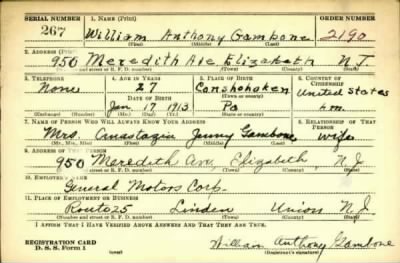 SERIAL NUMBER 1. NAME (Print) ORDER NUMBER
267 William Anthony Gambone 2190
(First) (Middle) (Last)
2. ADDRESS (Print)
950 Meredith Ave Elizabeth N J
(Number and street or R. F. D. number) (Town) (County) (State)
3. TELEPHONE 4. AGE IN YEARS 5. PLACE OF BIRTH 6. COUNTRY OF CITIZENSHIP
None 27 Conshohoken United States
DATE OF BIRTH
Jan 17 1913 Pa
(Exchange) (Number) (Mo.) (Day) (Yr.) (State or country)
7. NAME OF PERSON WHO WILL ALWAYS KNOW YOUR ADDRESS 8. RELATIONSHIP OF THAT PERSON
Mrs. Anastazia Jenny Gambone wife
(Mr., Mrs., Miss) (First) (Middle) (Last)
9. ADDRESS OF THAT PERSON
950 Meredeth Ave, Elizabeth, N.J
(Number and street or R. F. D. number) (Town) (County) (State)
10. EMPLOYER'S NAME
General Motors Corp.
11. PLACE OF EMPLOYMENT OR BUSINESS
Route 25 Linden Union N.J
(Number and street or R. F. D. number) (Town) (County) (State)
I AFFIRM THAT I HAVE VERIFIED ABOVE ANSWERS AND THAT THEY ARE TRUE.
REGISTRATION CARD
D. S. S. Form 1 (over) William Anthony Gambone
(Registrant's signature)